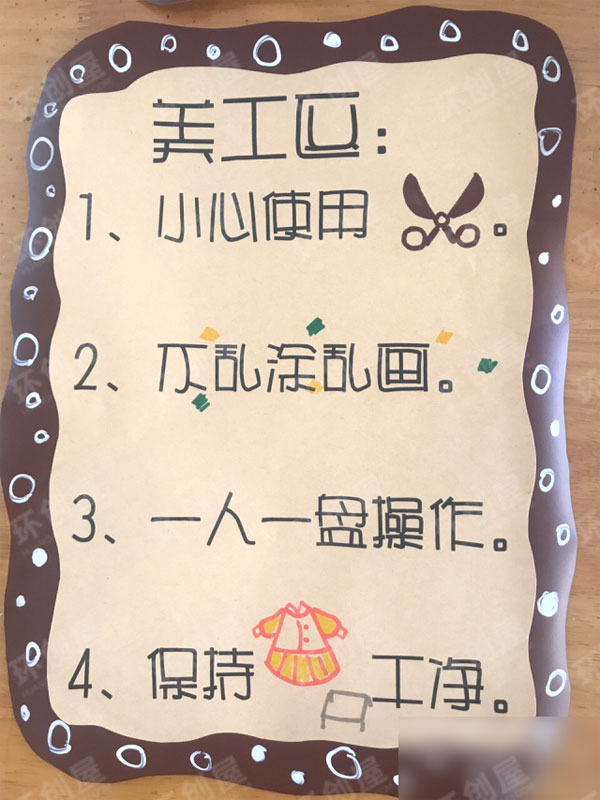 美工区：
1、小心使用。
2、不乱涂乱画。
3、一人一盘操作。
4、保持干净。
环创屋